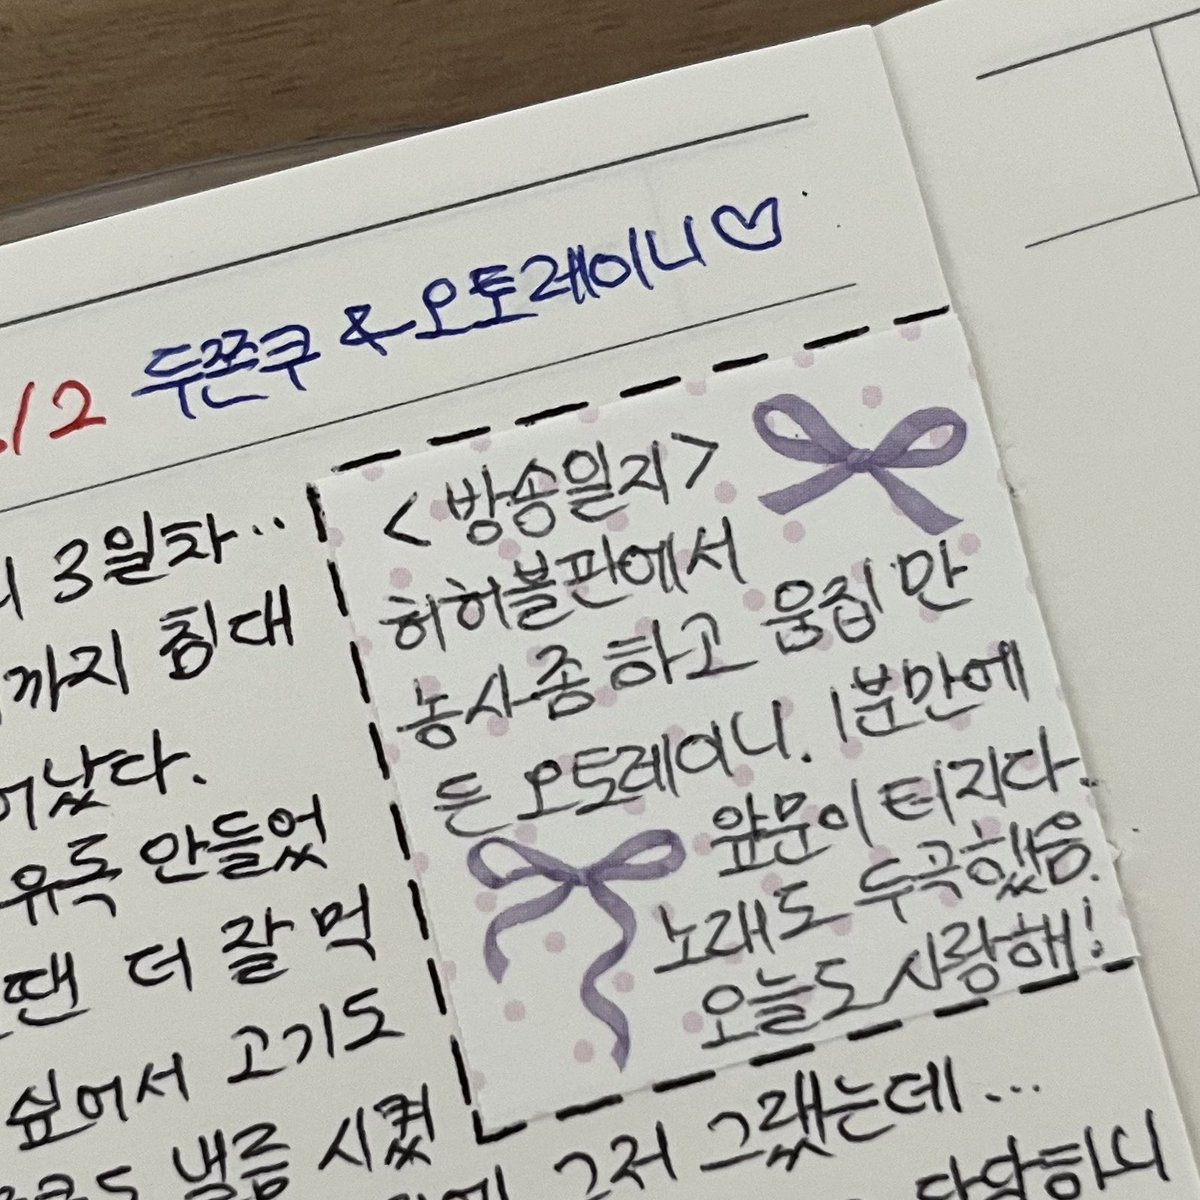 /2 두쫀쿠 & 오토레이니♡
<방송일지>
허허벌판에서
농사좀 하고 움집 만
든 오토레이니. 1분만에
앞문이 터지다.
노래도 두곡했음.
오늘도 사랑해!
3일차..
까지 침대
났다.
안들었
땐 더 잘 먹
싶어서 고기도
낼름 시켰
그저 그랬는데...
답답하니